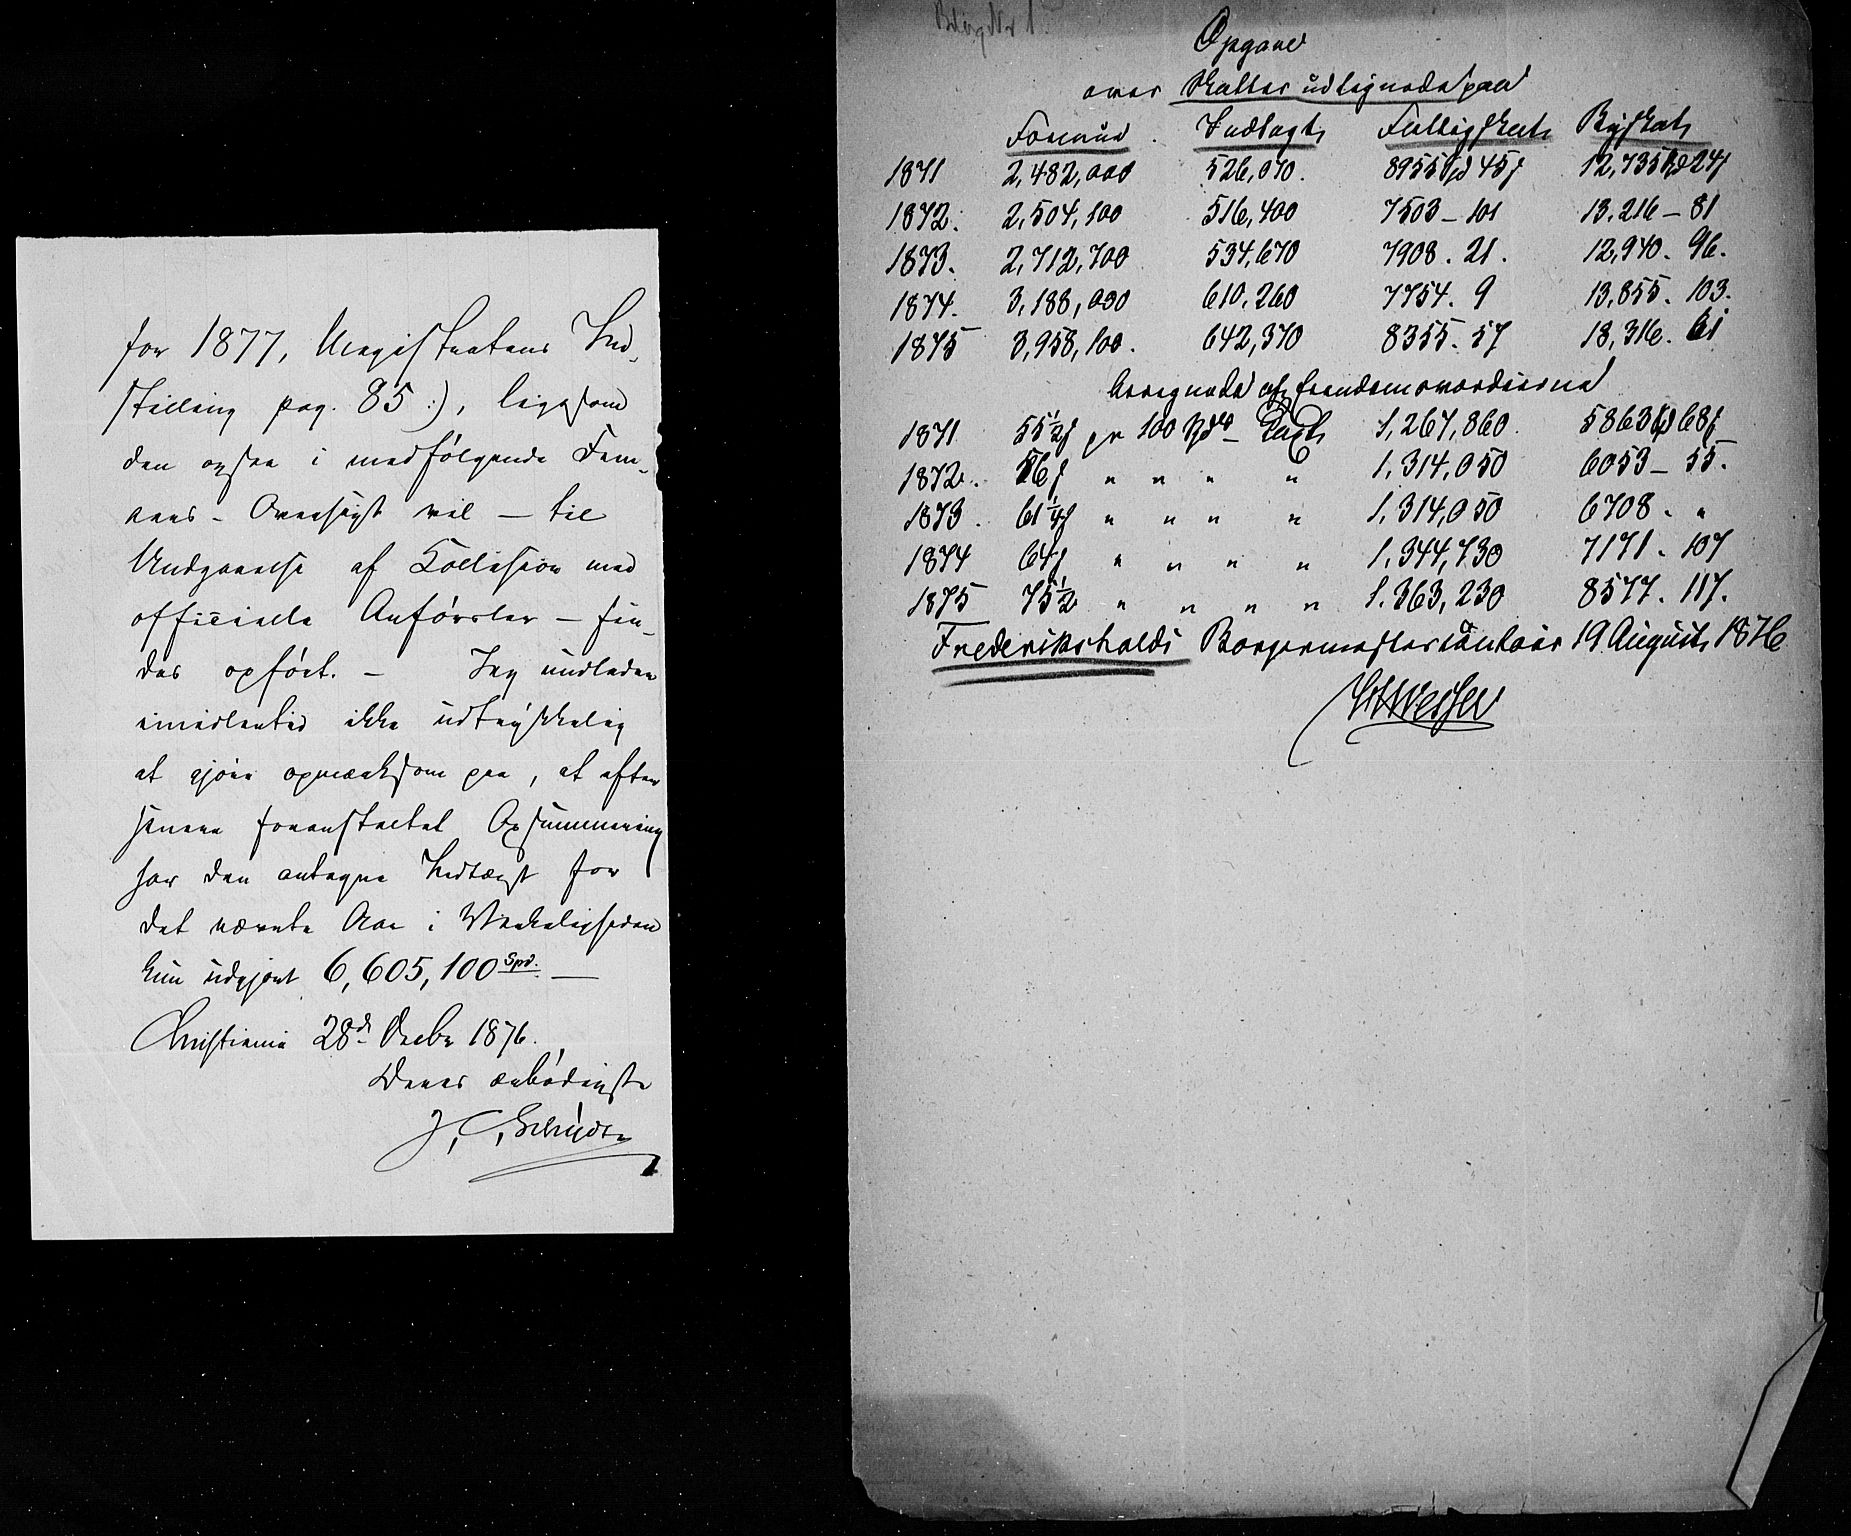 for 1877, Magistratens Ind-
stilling pag. 85 :), ligesom
den ogsaa i medfølgende Fem-
aars-Oversigt vil — til
Undgaaelse af Collision med
officielle Anførsler — fin-
des opført. — Jeg undlader
imidlertid ikke udtrykkelig
at gjøre opmærksom paa, at efter
senere foranstaltet Opsummering
har den antagne Indtægt for
det nævnte Aar i Virkeligheden
kun udgjort 6,605,100 Spd. —
Christiania 28de Decbr 1876.
Deres ærbødigste
Opgave
over Skatter udlignede paa
Formue. Indtægt, Fattigskat, Byskat,
1871 2,482,000 526,070. 8955 Spd 45 ß 12,735 Spd 24 ß
1872. 2,504,100 516,400 7503 – 101 13.216 – 81
1873. 2,712,700 534,670 7908. 21. 12,940. 96.
1874. 3,188,000 610,260 7754. 9 13.855. 103.
1875 3,958,100. 642,370 8355. 57 18,316. 61
beregnede af Eiendomsværdierne
1871 55 1/2 ß pr 100 Spd Taxt, 1,267,860. 5863 Spd 68 ß
1872. 56 ß " " " " 1.314,050 6053 – 55.
1873. 61 1/4 ß " " " " 1,314,050 6708. "
1874 64 ß " " " " 1.344,730 7171. 107
1875 75 1/2 " " " " 1.363,230 8577. 117.
Frederikshalds Borgermesterkontoir 19 August, 1876